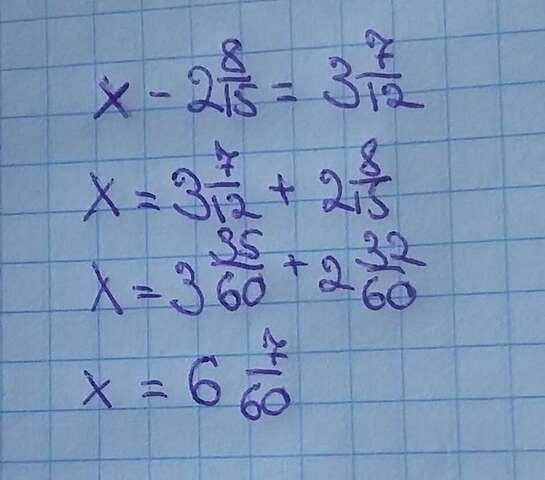 x - 2 8/15 = 3 7/12
x = 3 7/12 + 2 8/15
x = 3 35/60 + 2 32/60
x = 6 7/60